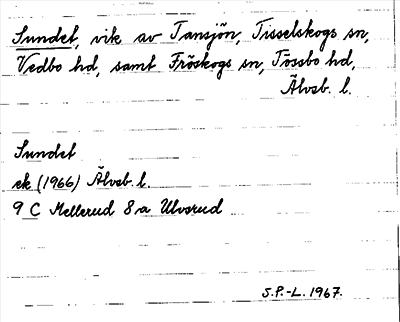 Sundet, vik av Tansjön, Tisselskogs sn,
Vedbo hd, samt Fröskogs sn, Tössbo hd,
Älvsb. l.
Sundet
ek (1966) Älvsb. l.
9 C Mellerud 8 a Ulvsrud
S.P.-L. 1967.